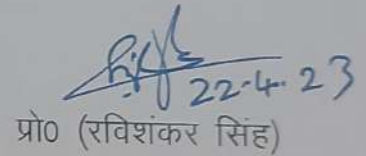 22.4.23
प्रो0 (रविशंकर सिंह)